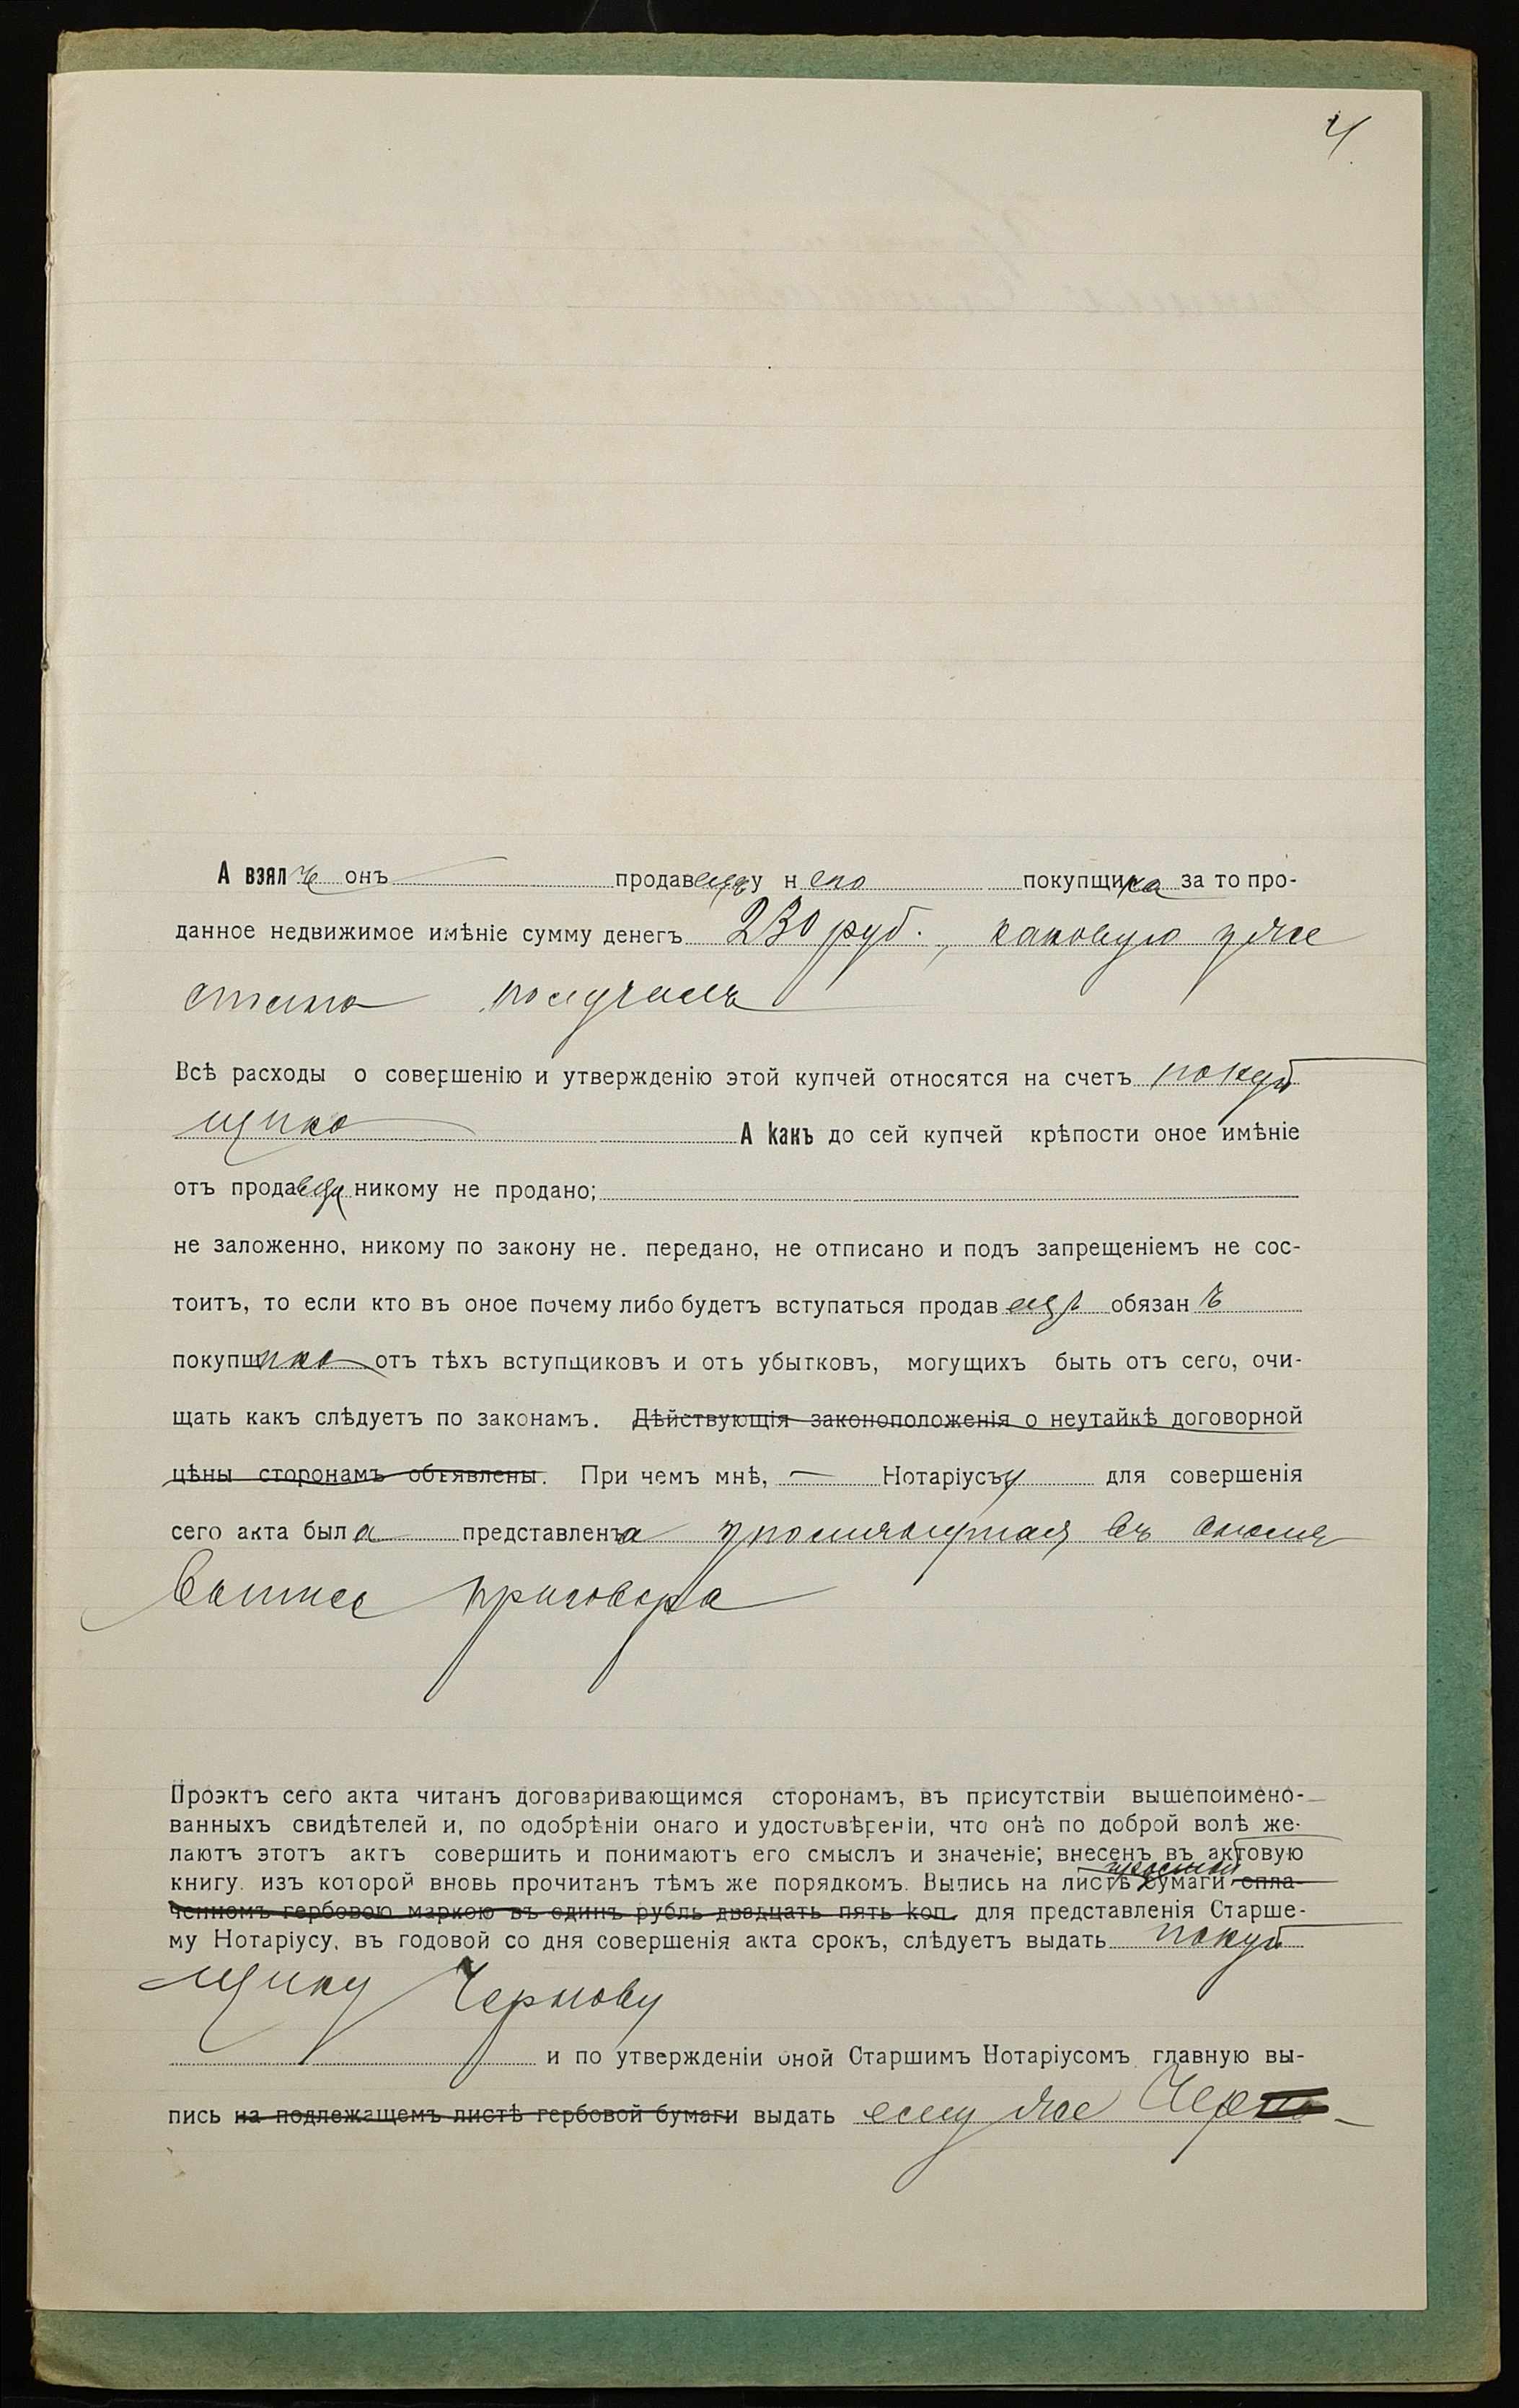 4
А взялъ онъ продавецъ у него покупщика за то про-
данное недвижимое имѣніе сумму денегъ 230 руб., каковую уже
сполна получилъ
Всѣ расходы о совершенію и утвержденію этой купчей относятся на счетъ покуп
щика А какъ до сей купчей крѣпости оное имѣніе
отъ продавца никому не продано;
не заложенно, никому по закону не. передано, не отписано и подъ запрещеніемъ не сос-
тоитъ, то если кто въ оное почему либо будетъ вступаться продавецъ обязанъ
покупщика отъ тѣхъ вступщиковъ и отъ убытковъ, могущихъ быть отъ сего, очи-
щать какъ слѣдуетъ по законамъ. Дѣйствующія законоположенія о неутайкѣ договорной
цѣны сторонамъ объявлены. При чемъ мнѣ, — Нотаріусъу для совершенія
сего акта была представленъа упомянутая въ
приговора
Проэктъ сего акта читанъ договаривающимся сторонамъ, въ присутствіи вышепоимено-
ванныхъ свидѣтелей и, по одобрѣніи онаго и удостовѣреніи, что онѣ по доброй волѣ же-
лаютъ этотъ актъ совершить и понимаютъ его смыслъ и значеніе; внесенъ въ актовую
книгу. изъ которой вновь прочитанъ тѣмъ же порядкомъ. Выпись на листѣ простой бумаги опла-
ченномъ гербовою маркою въ одинъ рубль двадцать пять коп. для представленія Старше-
му Нотаріусу, въ годовой со дня совершенія акта срокъ, слѣдуетъ выдать покуп
щику Чернову
и по утвержденіи оной Старшимъ Нотаріусомъ главную вы-
пись на подлежащемъ листѣ гербовой бумаги выдать ему же Черно